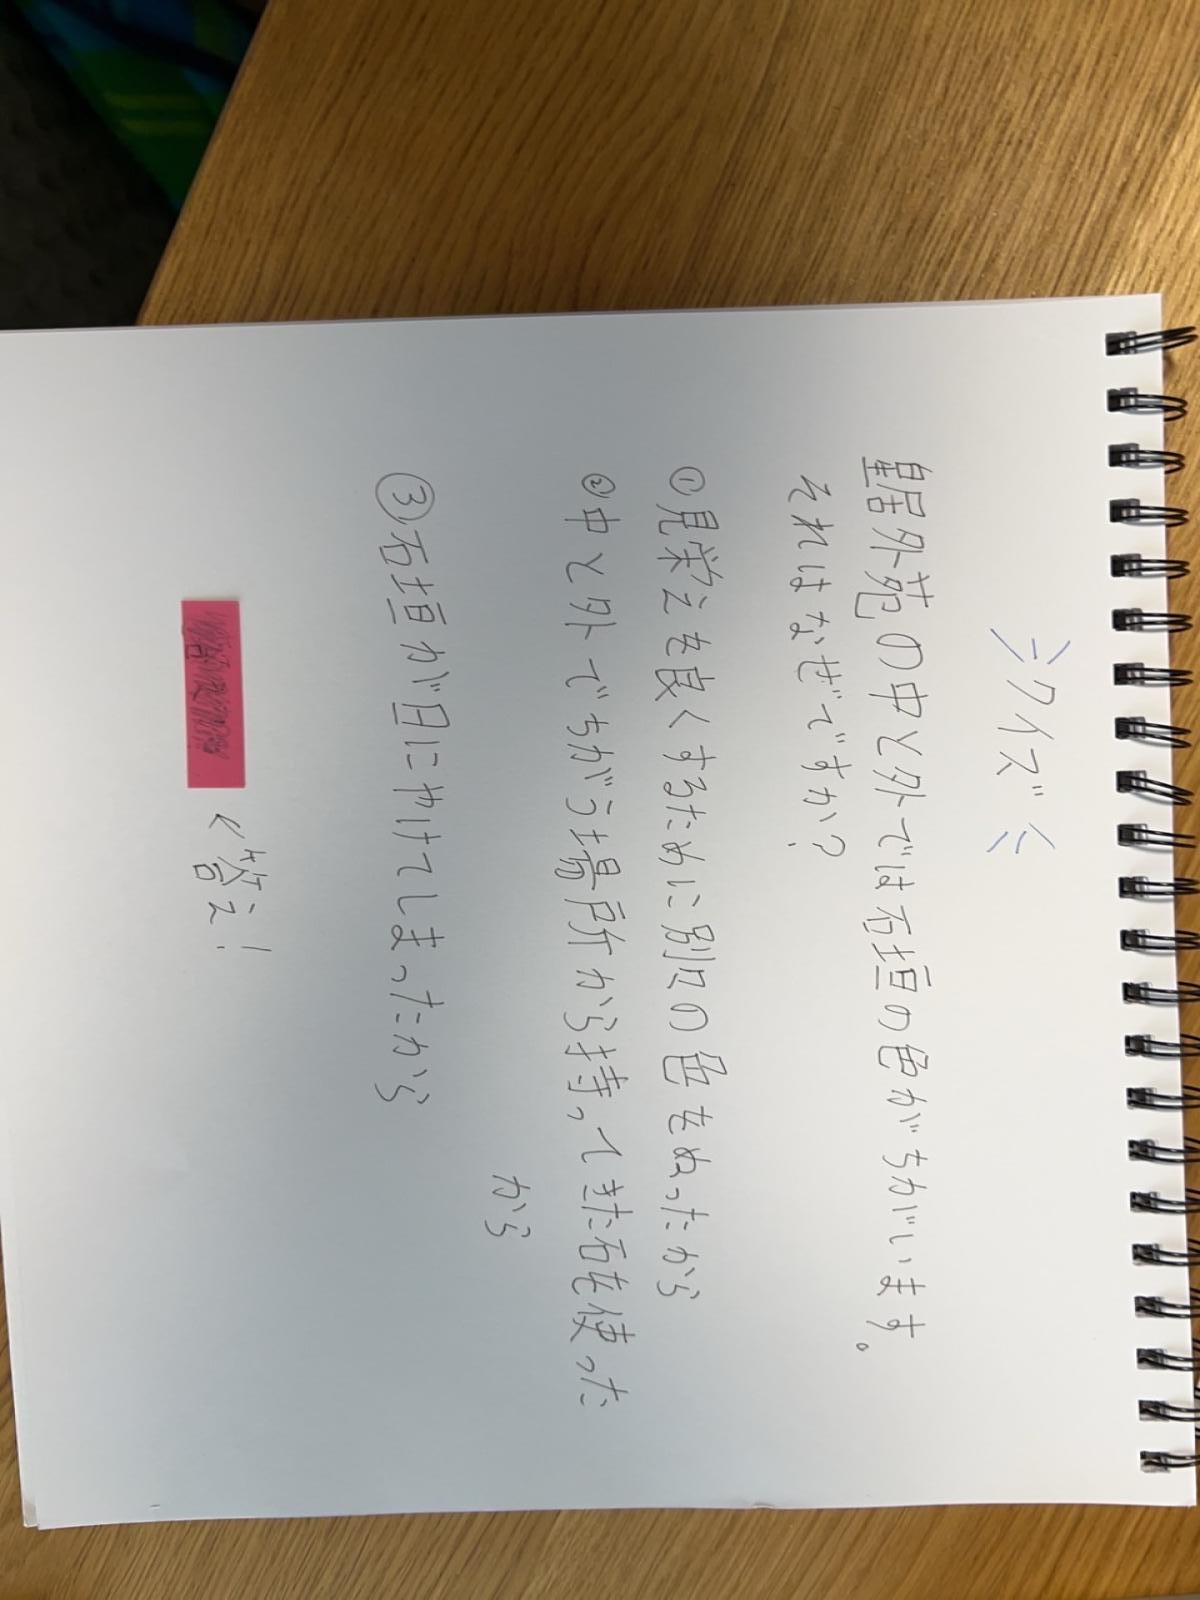 クイズ
皇居外苑の中と外では石垣の色がちがいます。
それはなぜですか？
①見栄えを良くするために別々の色をぬったから
②中と外でちがう場所から持ってきた石を使った
から
③石垣が日にやけてしまったから
答え！